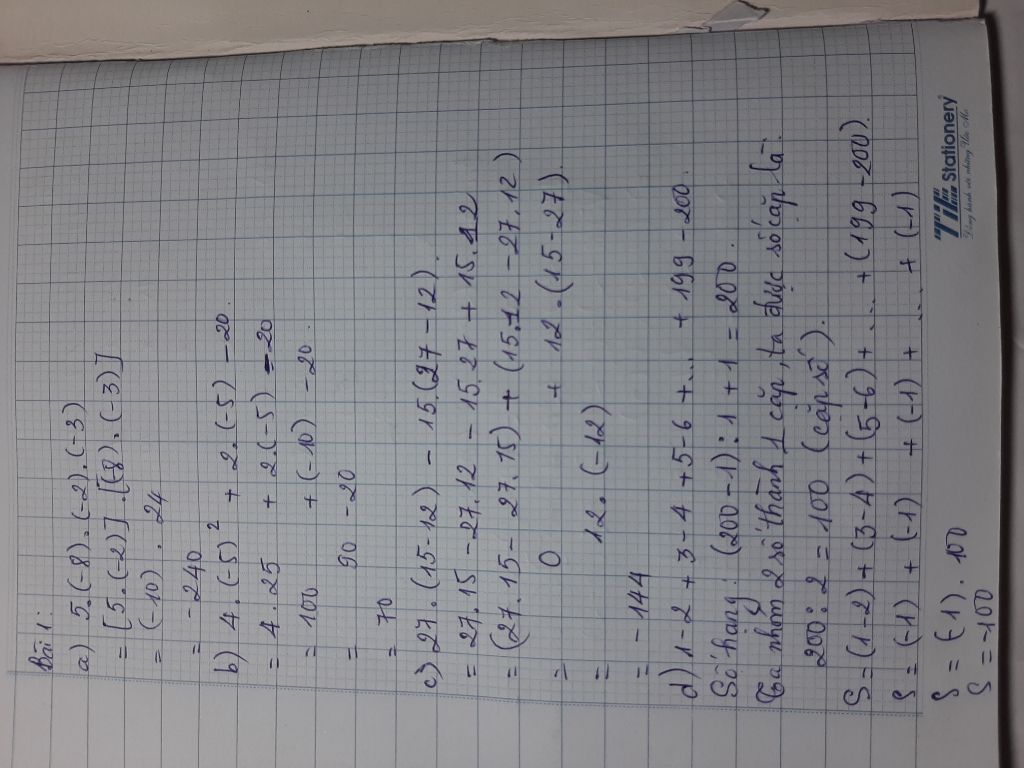 Bài 1:
a) 5.(-8).(-2).(-3)
= [5.(-2)].[(-8).(-3)]
= (-10) . 24
= -240
b) 4.(-5)² + 2.(-5) -20.
= 4.25 + 2.(-5) -20
= 100 + (-10) -20.
= 90 -20
= 70
c) 27.(15-12) - 15.(27-12).
= 27.15 -27.12 - 15.27 + 15.12
= (27.15- 27.15) + (15.12 -27.12)
= 0 + 12.(15-27).
= 12.(-12)
= -144
d) 1-2+3-4+5-6+... +199-200.
Số hạng: (200-1):1+1=200.
Ta nhóm 2 số thành 1 cặp, ta được số cặp là:
200:2=100 (cặp số).
S=(1-2)+(3-4)+(5-6)+... +(199-200).
S=(-1) + (-1) + (-1) + ... + (-1)
S = (-1) . 100
S = -100
TIE Stationery